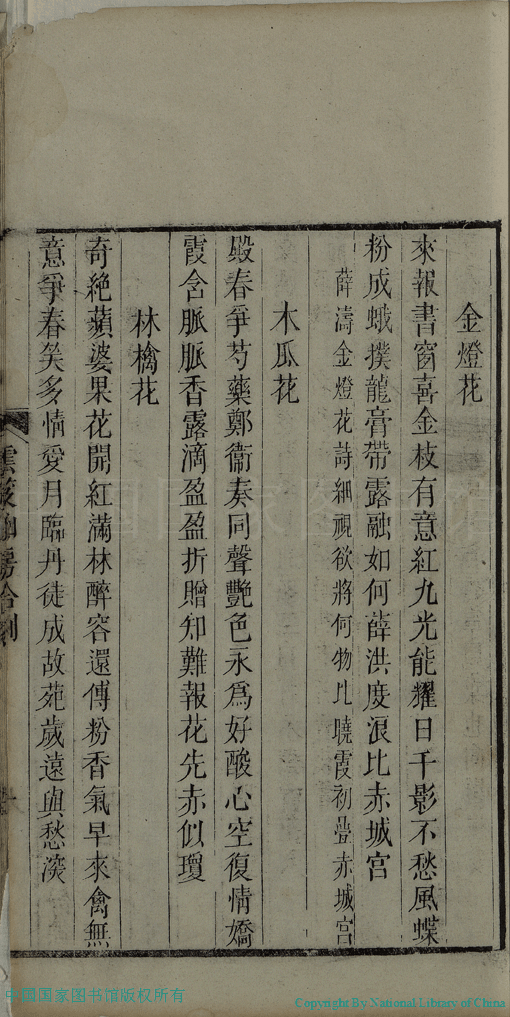 金燈花
來報書窗喜金枝有意紅九光能耀日千影不愁風蝶
粉成蛾撲龍膏帶露融如何薛洪度浪比赤城宮
薛濤金燈花詩細視欲將何物比曉霞初疊赤城宮
木瓜花
殿春爭芍藥鄭衞奏同聲艷色永為好酸心空復情嬌
霞含脈脈香露滴盈盈折贈知難報花先赤似瓊
林檎花
奇絶蘋婆果花開紅滿林醉容還傅粉香氣早來禽無
意爭春矣多情愛月臨丹徒成故苑歲遠與愁深
中国国家图书馆版权所有
Copyright By National Library of China